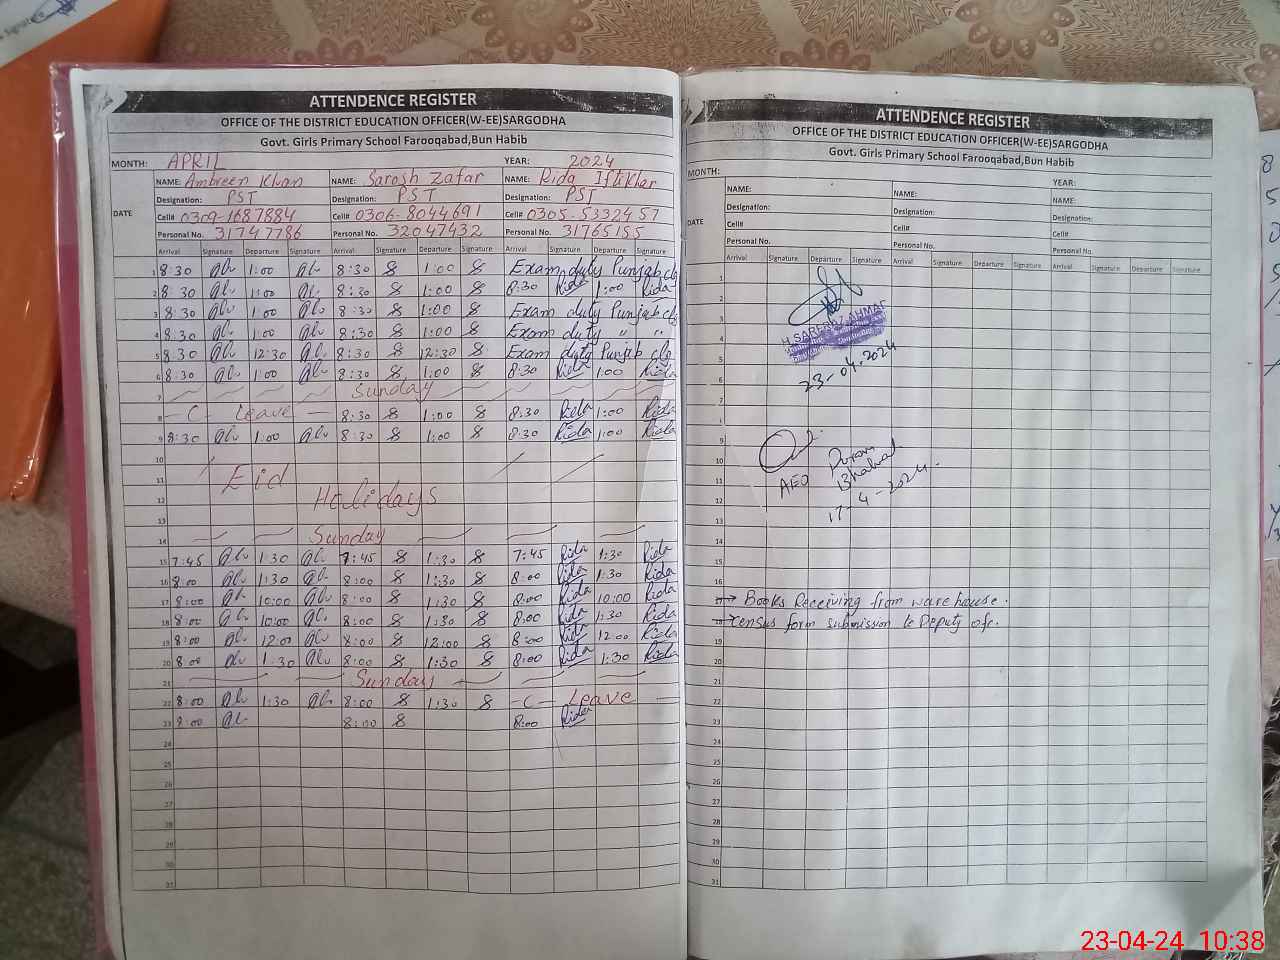 ATTENDENCE REGISTER
OFFICE OF THE DISTRICT EDUCATION OFFICER(W-EE)SARGODHA
Govt. Girls Primary School Farooqabad,Bun Habib
MONTH: APRIL YEAR: 2024
NAME: Ambreen Khan NAME: Sarosh Zafar NAME: Rida Iftikhar
Designation: PST Designation: PST Designation: PST
DATE Cell# 0309-1687884 Cell# 0306-8044691 Cell# 0305-5332457
Personal No. 31747786 Personal No. 32047432 Personal No. 31765155
Arrival Signature Departure Signature Arrival Signature Departure Signature Arrival Signature Departure Signature
1 8:30 1:00 8:30 1:00 Exam duty Punjab clg
2 8:30 1:00 8:30 1:00 8:30 Rida 1:00 Rida
3 8:30 1:00 8:30 1:00 Exam duty Punjab clg
4 8:30 1:00 8:30 1:00 Exam duty " "
5 8:30 12:30 8:30 12:30 Exam duty Punjab clg
6 8:30 1:00 8:30 1:00 8:30 Rida 1:00 Rida
7 Sunday
8 -C- Leave - 8:30 1:00 8:30 Rida 1:00 Rida
9 8:30 1:00 8:30 1:00 8:30 Rida 1:00 Rida
10
11 Eid
12 Holidays
13
14 Sunday
15 7:45 1:30 7:45 1:30 7:45 Rida 1:30 Rida
16 8:00 1:30 8:00 1:30 8:00 Rida 1:30 Rida
17 8:00 10:00 8:00 1:30 8:00 Rida 10:00 Rida
18 8:00 10:00 8:00 1:30 8:00 Rida 1:30 Rida
19 8:00 12:00 8:00 12:00 8:00 Rida 12:00 Rida
20 8:00 1:30 8:00 1:30 8:00 Rida 1:30 Rida
21 Sunday
22 8:00 1:30 8:00 1:30 -C- Leave
23 8:00 8:00 8:00 Rida
24
25
26
27
28
29
30
31
ATTENDENCE REGISTER
OFFICE OF THE DISTRICT EDUCATION OFFICER(W-EE)SARGODHA
Govt. Girls Primary School Farooqabad,Bun Habib
MONTH: YEAR:
NAME: NAME: NAME:
Designation: Designation: Designation:
DATE Cell# Cell# Cell#
Personal No. Personal No. Personal No.
Arrival Signature Departure Signature Arrival Signature Departure Signature Arrival Signature Departure Signature
1
2
3
4 H.SARFRAZ AHMAD
5
6 23-04-2024
7
8
9
10
11 AEO
12 17-4-2024
13
14
15
16
17 → Books Receiving from warehouse.
18 → Census form submission to Deputy ofc.
19
20
21
22
23
24
25
26
27
28
29
30
31
23-04-24 10:38